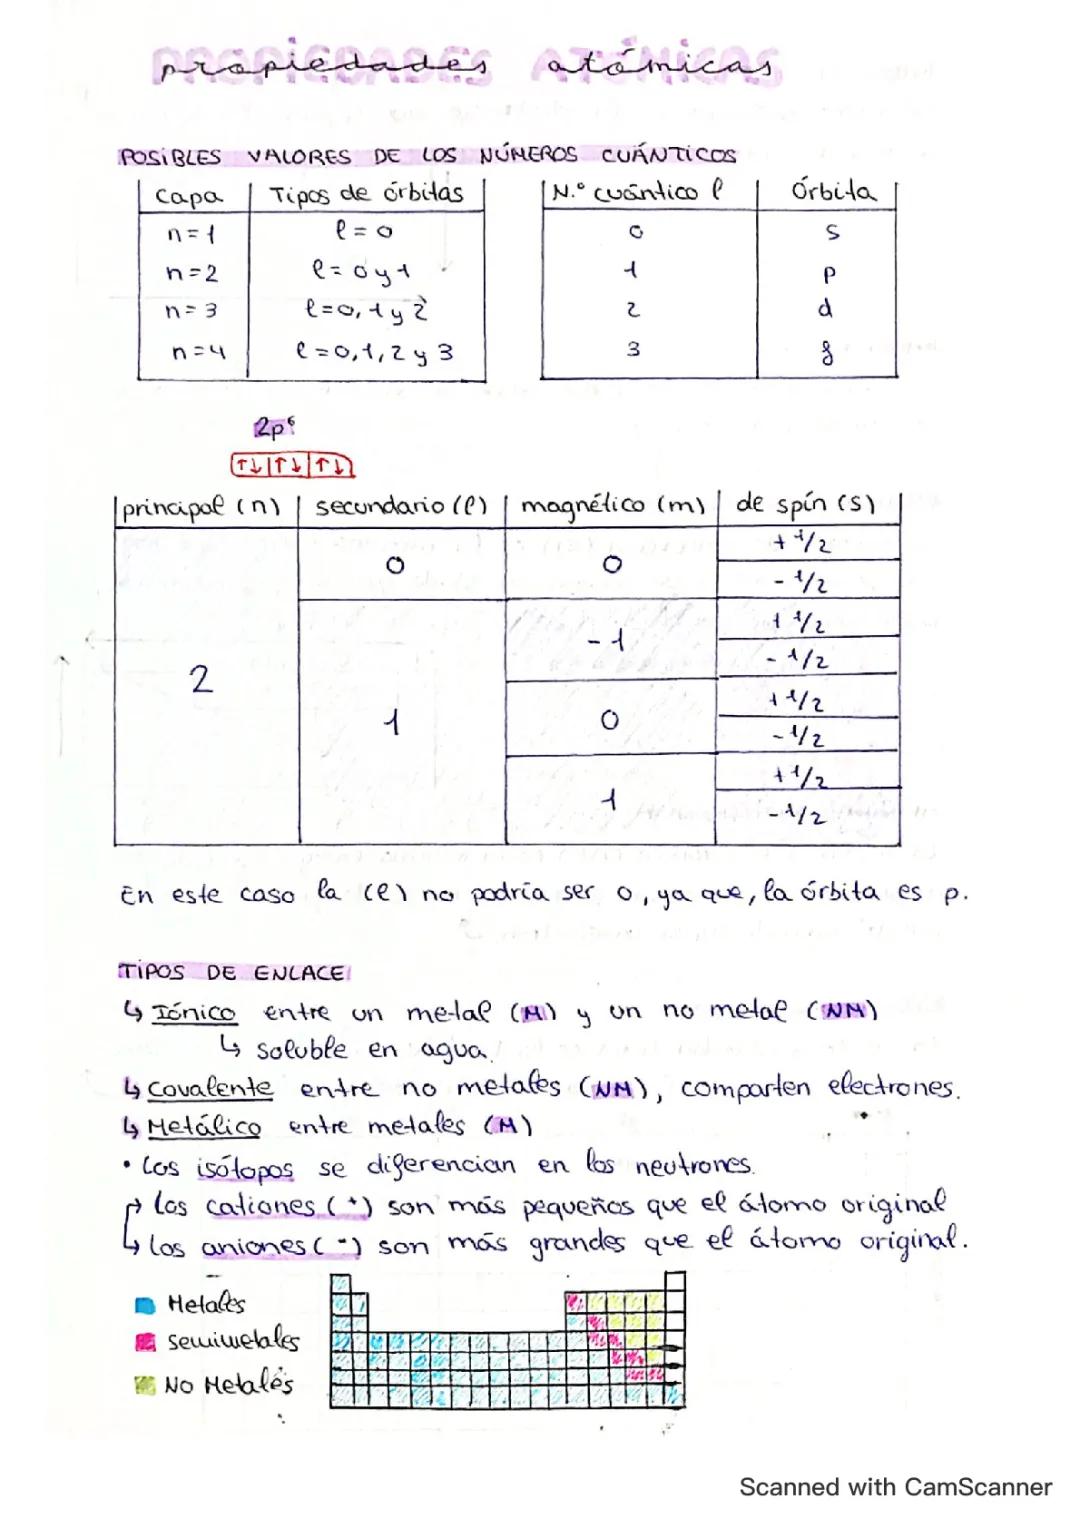 propiedades atómicas
POSIBLES VALORES DE LOS NÚMEROS CUÁNTICOS
Capa Tipos de órbitas N.º cuántico l Órbita
n=1 l=0 0 s
n=2 l=0 y 1 1 p
n=3 l=0, 1 y 2 2 d
n=4 l=0, 1, 2 y 3 3 f
2p⁶
↑↓ ↑↓ ↑↓
principal (n) secundario (l) magnético (m) de spín (s)
2 0 0 +1/2
-1/2
1 -1 +1/2
-1/2
0 +1/2
-1/2
1 +1/2
-1/2
En este caso la (l) no podría ser 0, ya que, la órbita es p.
TIPOS DE ENLACE
↳ Iónico entre un metal (M) y un no metal (NM)
↳ soluble en agua.
↳ Covalente entre no metales (NM), comparten electrones.
↳ Metálico entre metales (M)
• Los isótopos se diferencian en los neutrones.
↱ Los cationes (+) son más pequeños que el átomo original
↳ Los aniones (-) son más grandes que el átomo original.
Metales
Semimetales
No Metales
Scanned with CamScanner